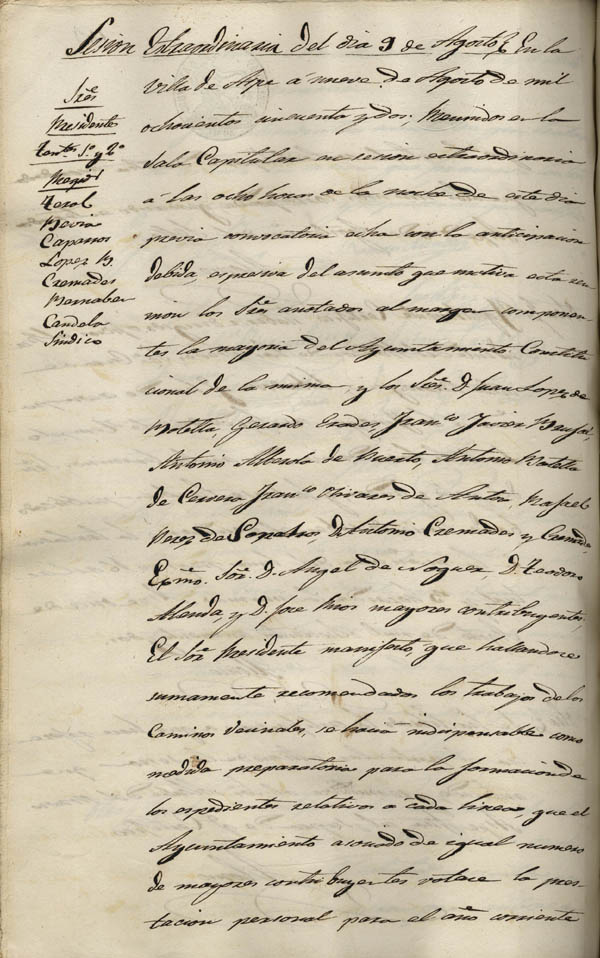 Sesion Extraordinaria del dia 9 de Agosto. En la
Sres
Presidente
Tentes 1º y 2º
Regids
Terol
Hevia
Caparros
Lopez
Cremades
Bernabeu
Candela
Sindico
Villa de Aspe á nueve de Agosto de mil
ochocientos cincuenta y dos; Reunidos en la
Sala Capitular en sesion extraordinaria
a las ocho horas de la noche de este dia
previa convocatoria echa con la anticipacion
debida espresiva del asunto que motiva esta reu
nion los Sres anotados al margen componen
tes la mayoria del Ayuntamiento Constitu
cional de la misma y los Sres. D. Juan Lopez de
Botella, Gerardo Erades, Franco Javier
Antonio Alberola de Puerto, Antonio Botella
de Cervero Franco Olivares de Anton, Rafael
Perez de D. Antonio Cremades y Cremades
Exmo. Sor. D. Angel de Noguer, D. Teodoro
Alenda, y D. Jose Rios mayores contribuyentes,
El Sor Presidente manifesto, que hallandose
sumamente recomendados los trabajos de los
Caminos vecinales, se hacia indispensable como
medida preparatoria para la formacion de
los espedientes relativos a cada linea, que el
Ayuntamiento asociado de igual numero
de mayores contribuyentes votace la pres-
tacion personal para el año corriente